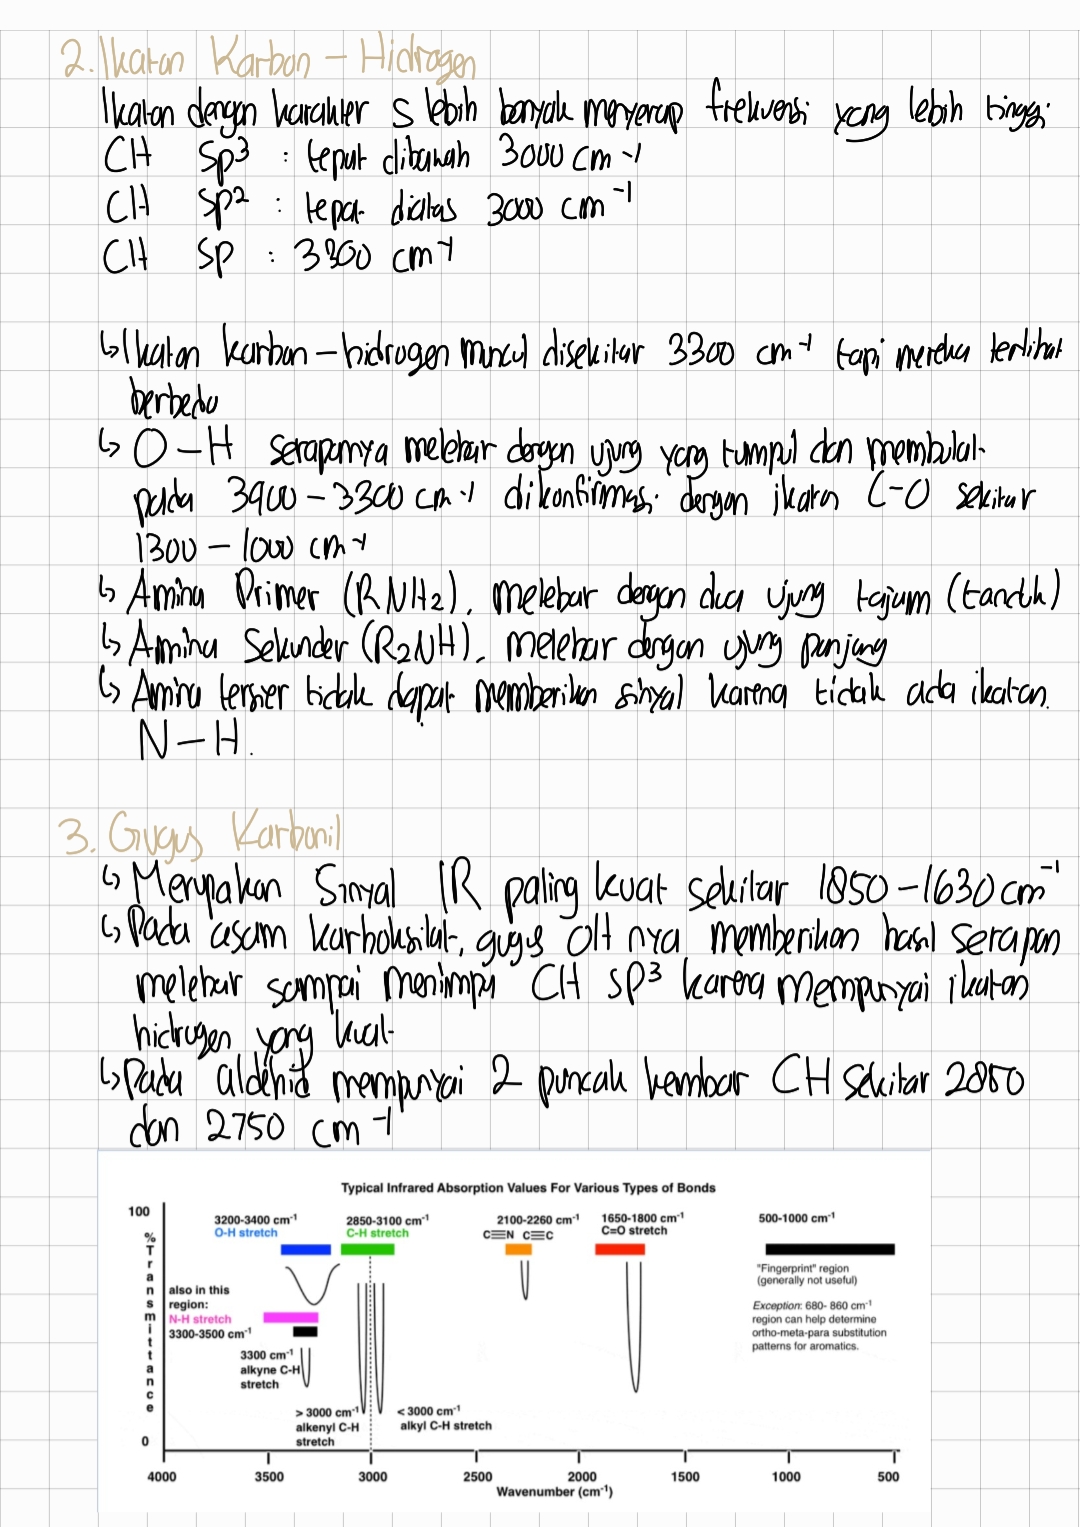 2. Ikatan Karbon – Hidrogen
Ikatan dengan karakter s lebih banyak menyerap frekuensi yang lebih tinggi
CH Sp³ : teput dibawah 3000 cm⁻¹
CH Sp² : tepat diatas 3000 cm⁻¹
CH Sp : 3300 cm⁻¹
↳ Ikatan karbon – hidrogen muncul disekitar 3300 cm⁻¹ tapi mereka terlihat
berbeda
↳ O – H serapannya melebar dengan ujung yang tumpul dan membulat
pada 3400 – 3300 cm⁻¹ dikonfirmasi dengan ikatan C-O sekitar
1300 – 1000 cm⁻¹
↳ Amina Primer (RNH₂), melebar dengan dua ujung tajam (tanduk)
↳ Amina Sekunder (R₂NH), melebar dengan ujung panjang
↳ Amina tersier tidak dapat memberikan sinyal karena tidak ada ikatan
N – H.
3. Gugus Karbonil
↳ Merupakan Sinyal IR paling kuat sekitar 1850 – 1630 cm⁻¹
↳ Pada asam karboksilat, gugus OH nya memberikan hasil serapan
melebar sampai menimpa CH sp³ karena mempunyai ikatan
hidrogen yang kuat
↳ Pada aldehid mempunyai 2 puncak kembar CH sekitar 2850
dan 2750 cm⁻¹
Typical Infrared Absorption Values For Various Types of Bonds
100
% Transmittance
0
3200-3400 cm⁻¹
O-H stretch
2850-3100 cm⁻¹
C-H stretch
2100-2260 cm⁻¹
C≡N C≡C
1650-1800 cm⁻¹
C=O stretch
500-1000 cm⁻¹
"Fingerprint" region
(generally not useful)
Exception: 680- 860 cm⁻¹
region can help determine
ortho-meta-para substitution
patterns for aromatics.
also in this
region:
N-H stretch
3300-3500 cm⁻¹
3300 cm⁻¹
alkyne C-H
stretch
> 3000 cm⁻¹
alkenyl C-H
stretch
< 3000 cm⁻¹
alkyl C-H stretch
4000 3500 3000 2500 2000 1500 1000 500
Wavenumber (cm⁻¹)